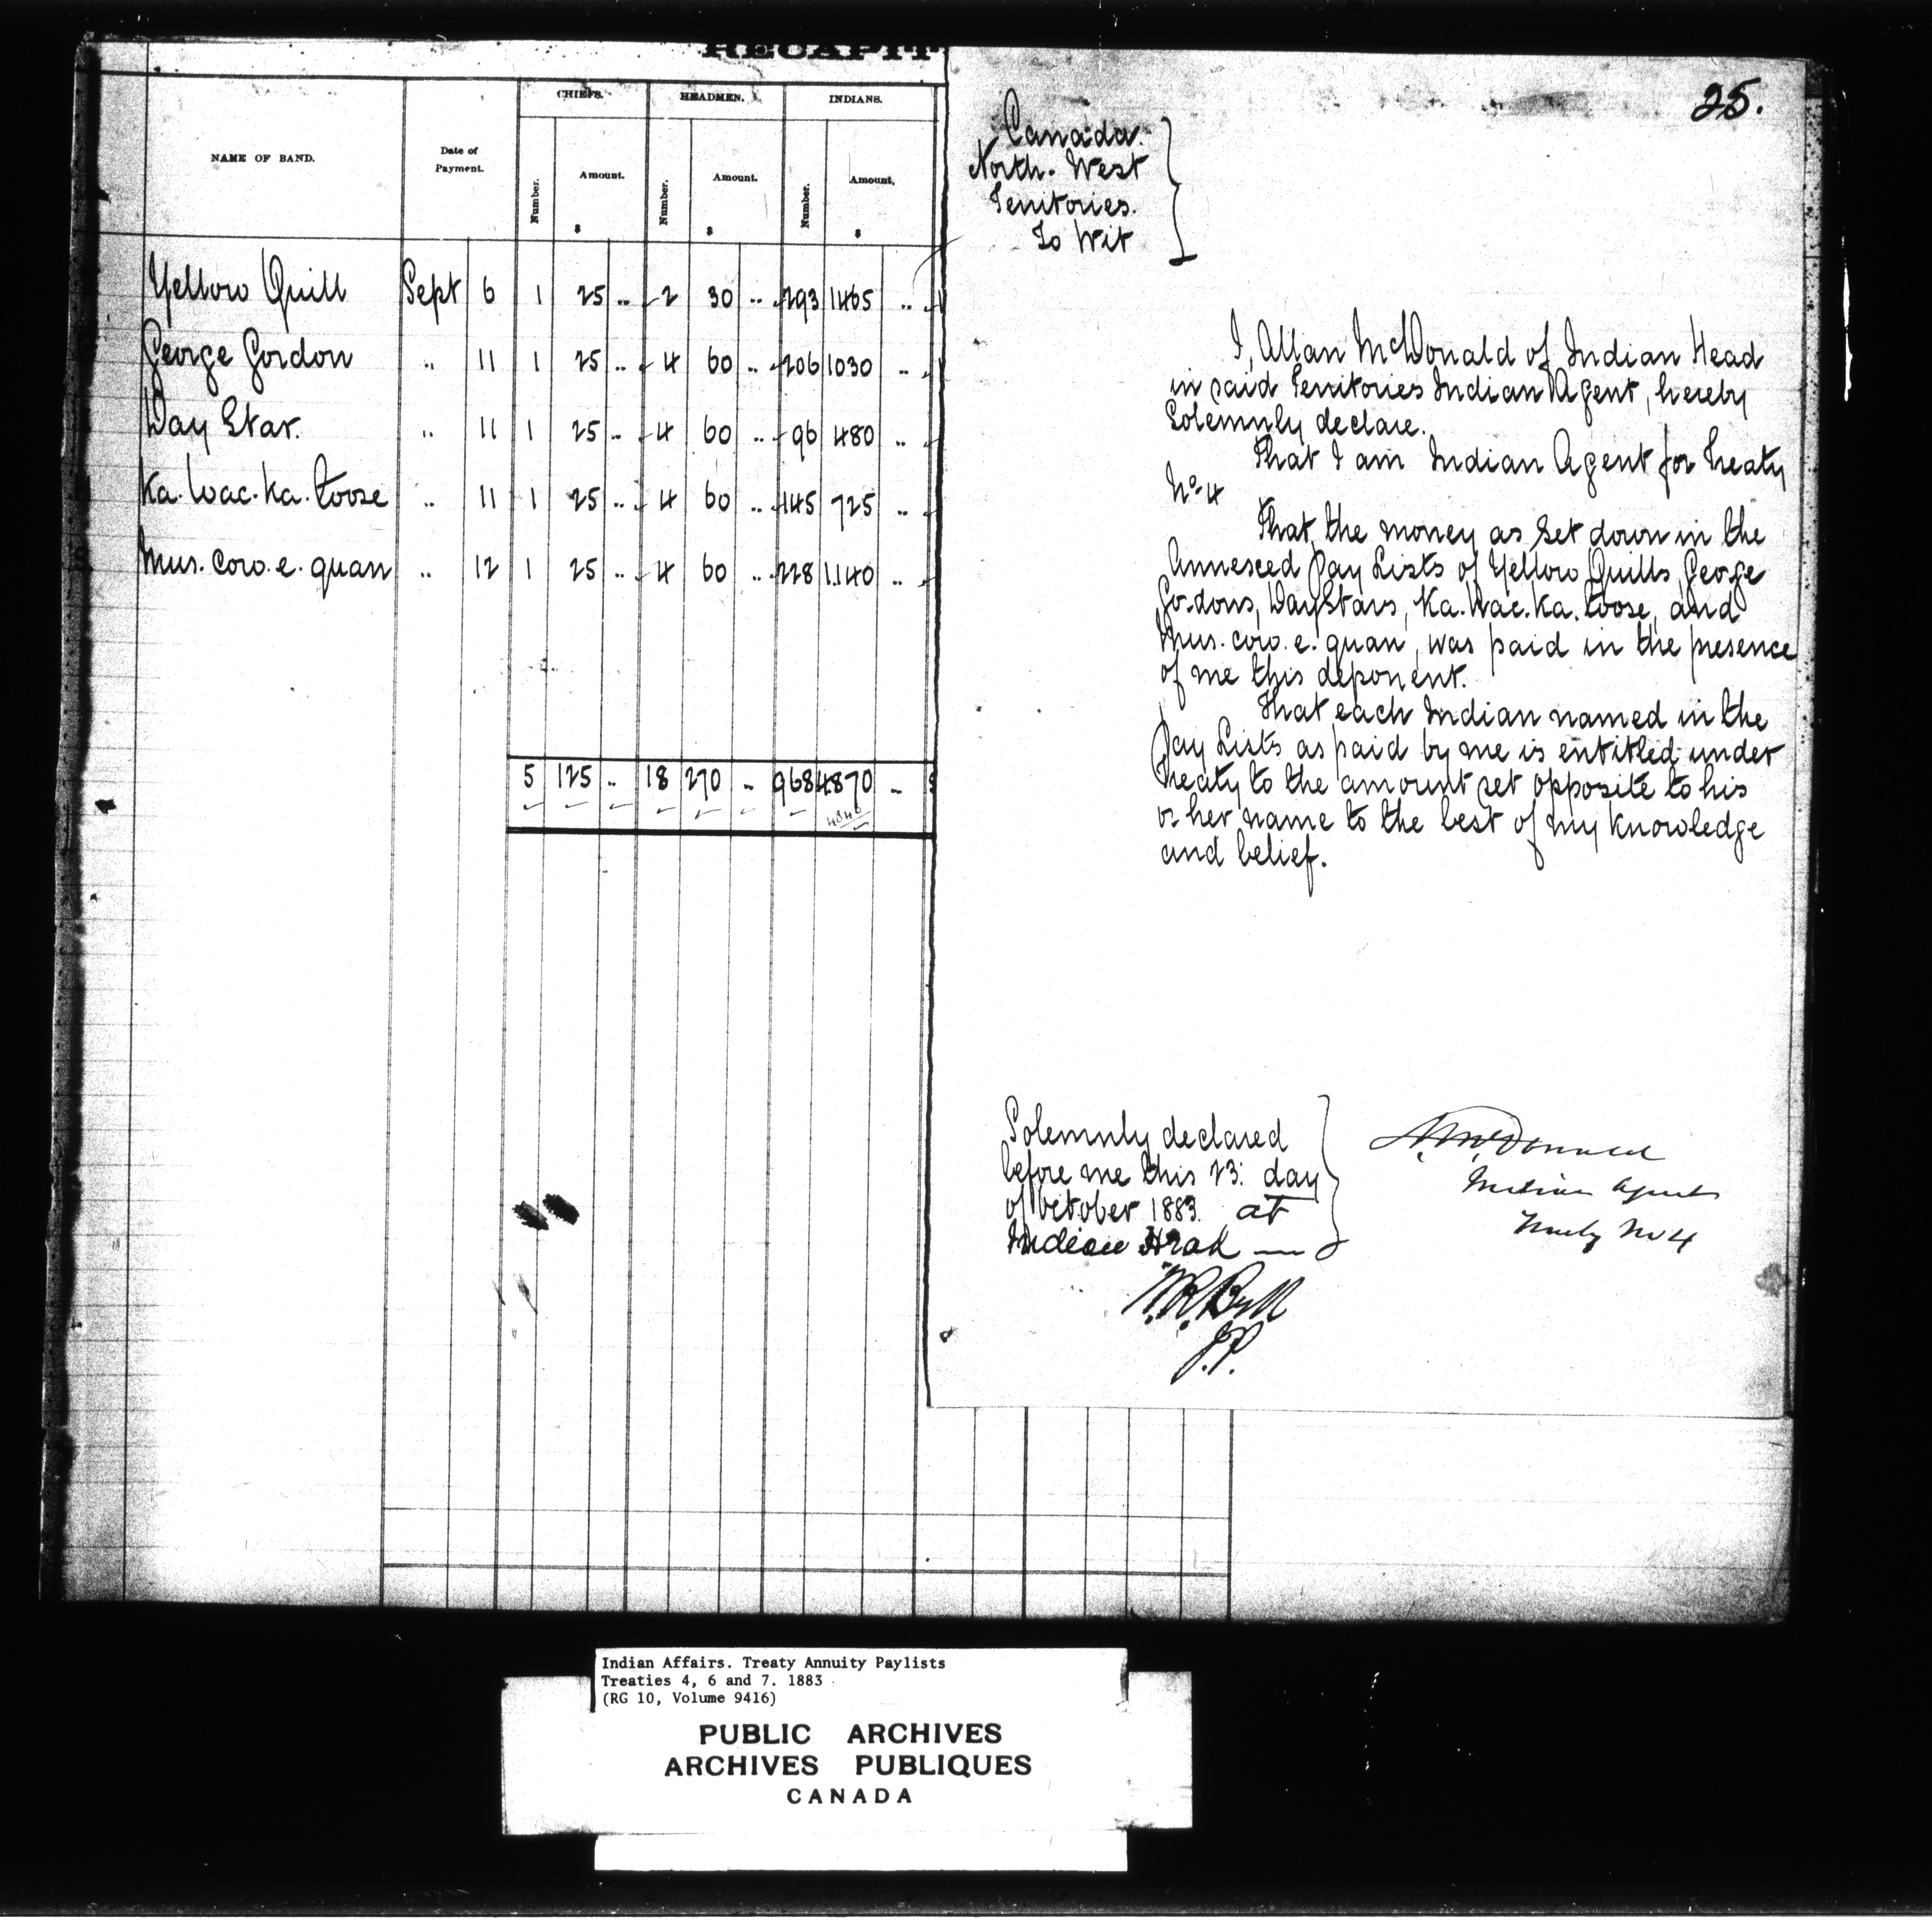 RECAPIT
NAME OF BAND. Date of Payment. CHIEFS. HEADMEN. INDIANS.
Number. Amount. $ Number. Amount. $ Number. Amount. $
Yellow Quill Sept 6 1 25 .. 2 30 .. 293 1465 ..
George Gordon .. 11 1 25 .. 4 60 .. 206 1030 ..
Day Star. .. 11 1 25 .. 4 60 .. 96 480 ..
Ka. Wac. Ka. toose .. 11 1 25 .. 4 60 .. 145 725 ..
Mus. cow. e. quan .. 12 1 25 .. 4 60 .. 228 1140 ..
5 125 .. 18 270 - 968 4870 -
4840
25.
Canada.
North. West
Territories.
To Wit
I, Allan McDonald of Indian Head
in said Territories Indian Agent, hereby
Solemnly declare.
That I am Indian Agent for Treaty
No 4
That the money as set down in the
Annexed Pay Lists of Yellow Quills, George
Gordons, Day Stars, Ka. Wac. Ka. toose, and
Mus. cow. e. quan, was paid in the presence
of me this deponent.
That each Indian named in the
Pay Lists as paid by me is entitled under
Treaty to the amount set opposite to his
or her name to the best of my knowledge
and belief.
Solemnly declared
before me this 23: day
of October 1883. at
Indian Head
A. McDonald
Indian Agent
Treaty No 4
W.R. Bell
J.P.
Indian Affairs. Treaty Annuity Paylists
Treaties 4, 6 and 7. 1883
(RG 10, Volume 9416)
PUBLIC ARCHIVES
ARCHIVES PUBLIQUES
CANADA